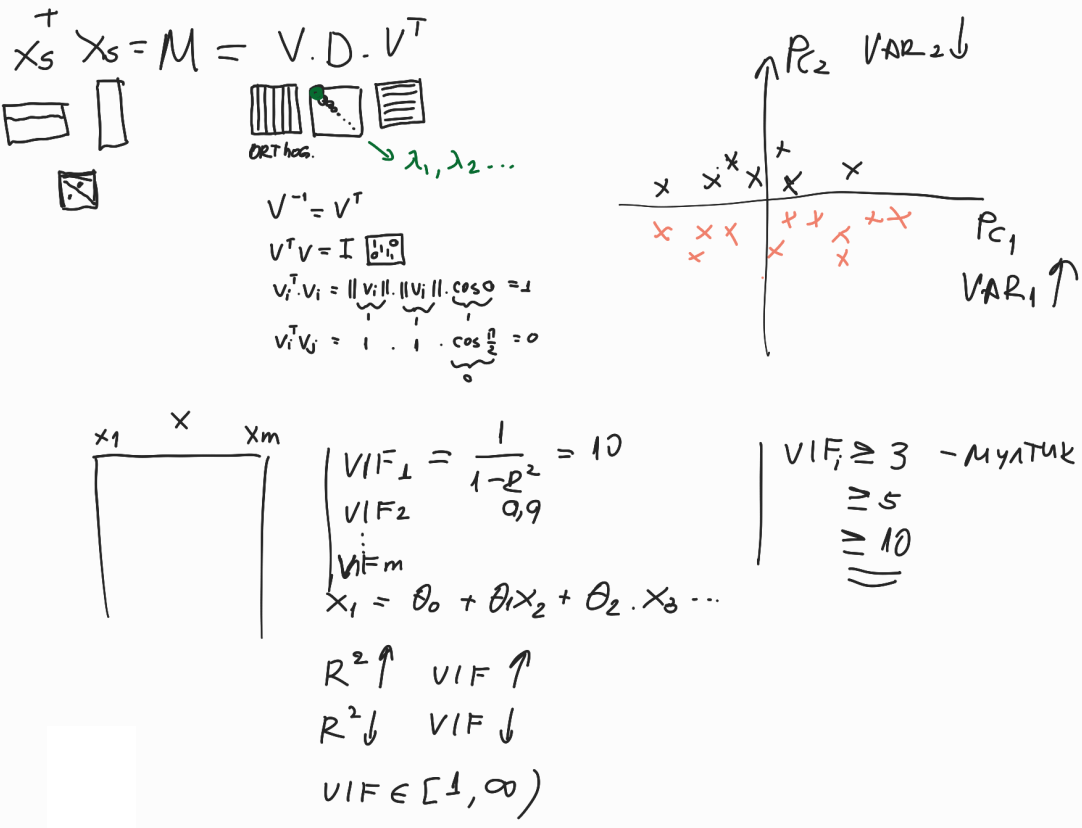 Xs^T Xs = M = V . D . V^T
ORThoG.
λ1, λ2 ...
V^-1 = V^T
V^T V = I
vi^T . vi = ||vi|| . ||vi|| . cos 0 = 1
1 1 1
vi^T vj = 1 . 1 . cos π/2 = 0
0
PC2 VAR2 ↓
PC1
VAR1 ↑
X
x1 xm
VIF1 = 1/(1-R^2) = 10
0,9
VIF2
⋮
VIFm
x1 = θ0 + θ1x2 + θ2 . x3 ...
R^2 ↑ VIF ↑
R^2 ↓ VIF ↓
VIF ∈ [1, ∞)
VIFi ≥ 3 - МУЛТИК
≥ 5
≥ 10